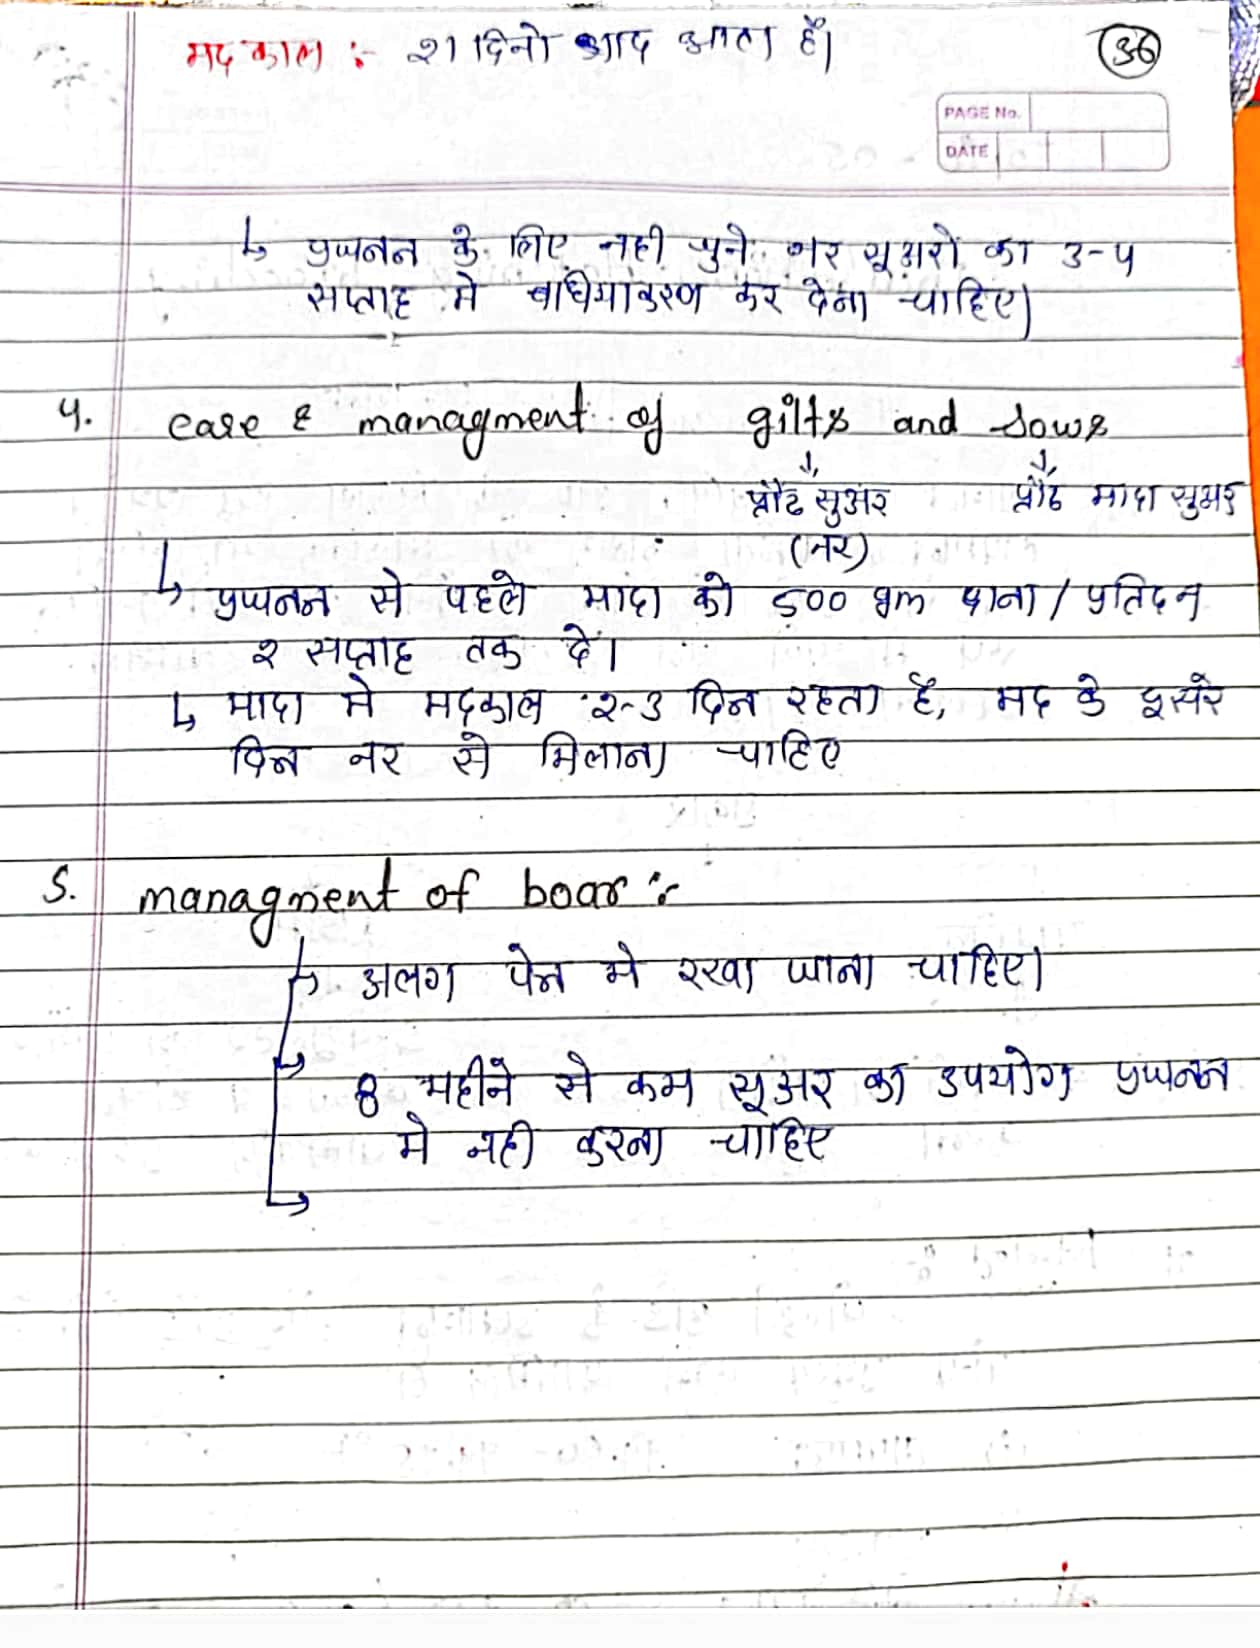 मदकाल :- २१ दिनो बाद आता है।
36
PAGE No.
DATE
↳ प्रजनन के लिए नही चुने नर सूअरो का ३-५
सप्ताह मे बाधियाकरण कर देना चाहिए।
4. care & managment of gilts and sows
↓ ↓
प्रौढ सुअर प्रौढ मादा सुअर
(नर)
↳ प्रजनन से पहले मादा को 500 gm दाना / प्रतिदन
२ सप्ताह तक दें।
↳ मादा मे मदकाल २-३ दिन रहता है, मद के दूसरे
दिन नर से मिलाना चाहिए
5. managment of boar :-
↳ अलग पेन मे रखा जाना चाहिए।
↳ 8 महीने से कम सूअर का उपयोग प्रजनन
मे नही करना चाहिए